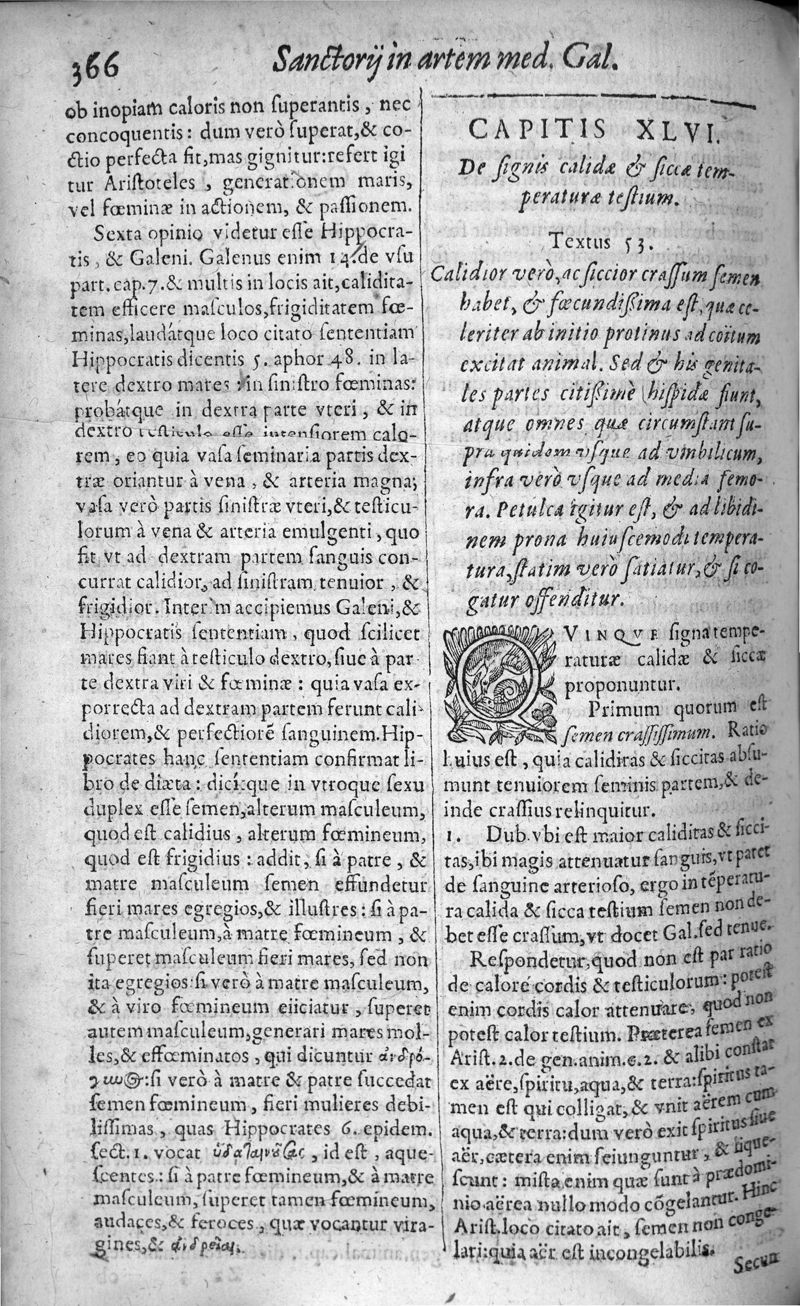 366
Sanctorij in artem med. Gal.
ob inopiam caloris non ſuperantis, nec
concoquentis: dum verò ſuperat,& co-
ctio perfecta fit,mas gignitur:refert igi
tur Ariſtoteles, generationem maris,
vel fœminæ in actionem, & paſſionem.
Sexta opinio videtur eſſe Hippocra-
tis, & Galeni. Galenus enim 14.de vſu
part. cap.7.& multis in locis ait,calidita-
tem efficere maſculos,frigiditatem fœ-
minas,laudátque loco citato ſententiam
Hippocratis dicentis 5. aphor 48. in la-
tere dextro mares: in ſiniſtro fœminas:
probátque in dextra parte vteri, & in
dextro teſticulo eſſe intenſiorem calo-
rem, eo quia vaſa ſeminaria partis dex-
træ oriantur à vena, & arteria magna;
vaſa verò partis ſiniſtræ vteri,& teſticu-
lorum à vena & arteria emulgenti, quo
fit vt ad dextram partem ſanguis con-
currat calidior, ad ſiniſtram tenuior, &
frigidior. Interim accipiemus Galeni,&
Hippocratis ſententiam, quod ſcilicet
mares fiant à teſticulo dextro,ſiue à par
te dextra viri & fœminæ: quia vaſa ex-
porrecta ad dextram partem ferunt cali-
diorem,& perfectiorē ſanguinem.Hip-
pocrates hanc ſententiam confirmat li-
bro de diæta: dicitque in vtroque ſexu
duplex eſſe ſemen,alterum maſculeum,
quod eſt calidius, alterum fœmineum,
quod eſt frigidius: addit, ſi à patre, &
matre maſculeum ſemen effundetur
fieri mares egregios,& illuſtres: ſi à pa-
tre maſculeum,à matre fœmineum, &
ſuperet maſculeum fieri mares, ſed non
ita egregios: ſi verò à matre maſculeum,
& à viro fœmineum eiiciatur, ſuperet
autem maſculeum,generari mares mol-
les,& effœminatos, qui dicuntur ἀνδρό-
γυνοι:ſi verò à matre & patre ſuccedat
ſemen fœmineum, fieri mulieres debi-
liſſimas, quas Hippocrates 6. epidem.
ſect.1. vocat, id eſt, aque-
ſcentes.: ſi à patre fœmineum,& à matre
maſculeum, ſuperet tamen fœmineum,
audaces,& feroces, quæ vocantur vira-
gines,& ἀνδρεῖαι.
CAPITIS XLVI.
De ſignis calidæ & ſiccæ tem-
peraturæ teſtium.
Textus 53.
Calidior verò,ac ſiccior craſſum ſemen
habet, & fœcundiſſima eſt,quæ ce-
leriter ab initio protinus ad coitum
excitat animal. Sed & his genita-
les partes citiſſimè hiſpidæ fiunt,
atque omnes quæ circumſtant ſu-
pra quidem vſque ad vmbilicum,
infra verò vſque ad media femo-
ra. Petulca igitur eſt, & ad libidi-
nem prona huiuſcemodi tempera-
tura,ſtatim verò ſatiatur,& ſi co-
gatur offenditur.
QVINQVE ſigna tempe-
raturæ calidæ & ſiccæ
proponuntur.
Primum quorum eſt
ſemen craſſiſſimum. Ratio
huius eſt, quia caliditas & ſiccitas abſu-
munt tenuiorem ſeminis partem,& de-
inde craſſius relinquitur.
1. Dub.vbi eſt maior caliditas & ſicci-
tas,ibi magis attenuatur ſanguis,vt patet
de ſanguine arterioſo, ergo in tēperatu-
ra calida & ſicca teſtium ſemen non de-
bet eſſe craſſum,vt docet Gal.ſed tenue.
Reſpondetur,quod non eſt par ratio
de calore cordis & teſticulorum: poteſt
enim cordis calor attenuare, quod non
poteſt calor teſtium. Præterea ſemen ex
Ariſt.2.de gen.anim.c.2. & alibi conſtat
ex aëre,ſpiritu,aqua,& terra:ſpiritus ta-
men eſt qui colligat,& vnit aërem cum
aqua,& terra:dum verò exit ſpiritus ſiue
aër,cætera enim ſeiunguntur, & lique-
ſcunt: miſta enim quæ ſunt à prædomi-
nio aërea nullo modo cōgelantur. Hinc
Ariſt.loco citato ait, ſemen non conge-
lari:quia aër eſt incongelabilis.
Secun